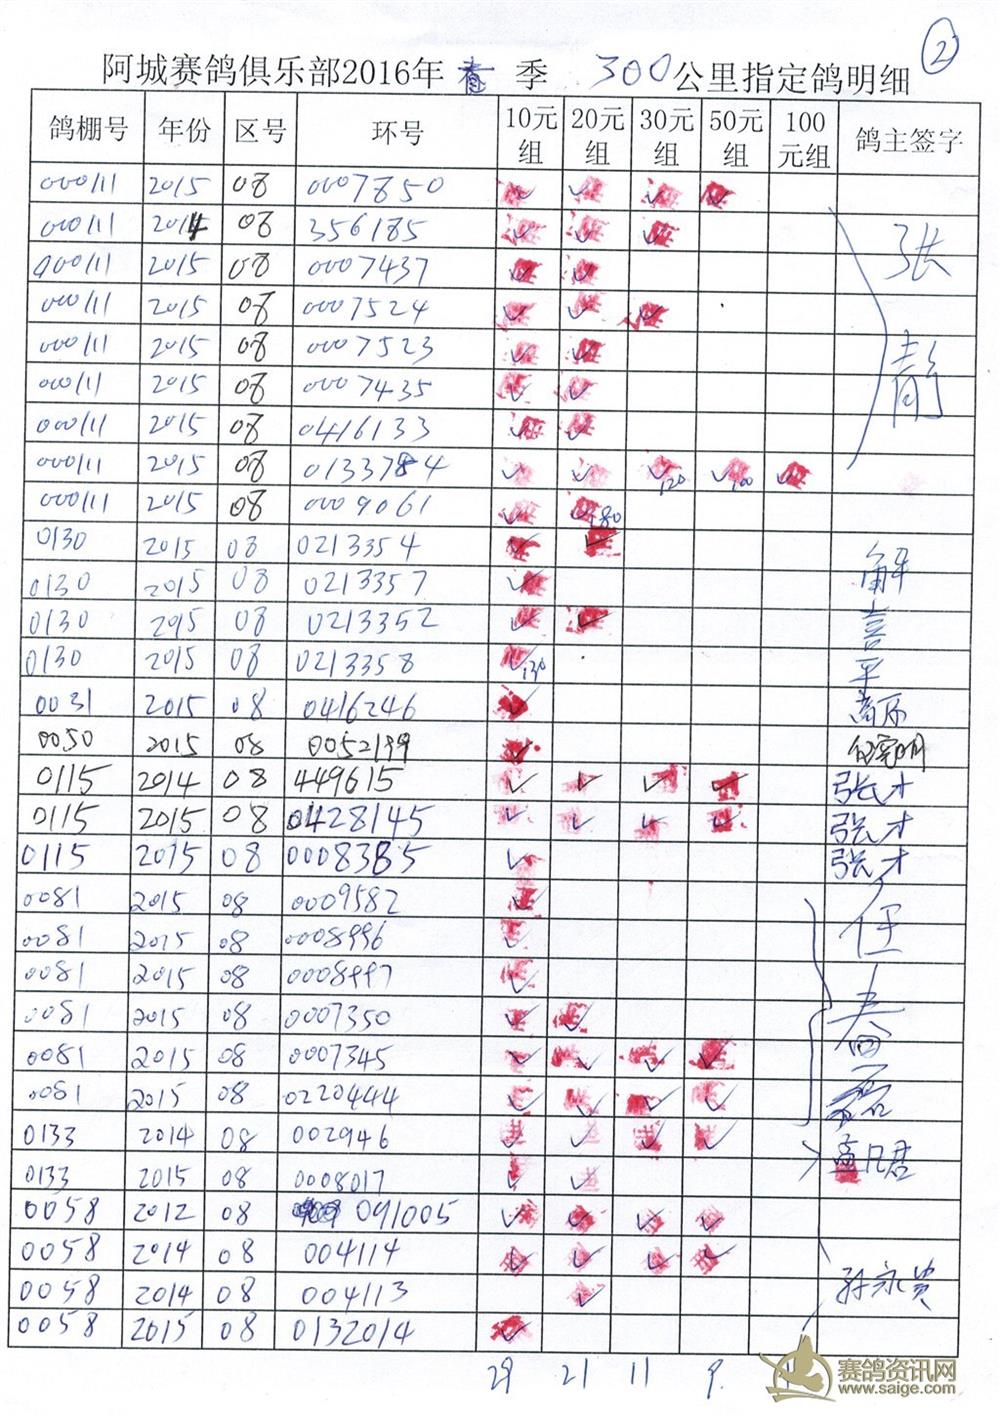 2
阿城赛鸽俱乐部2016年春季 300公里指定鸽明细
鸽棚号 年份 区号 环号 10元组 20元组 30元组 50元组 100元组 鸽主签字
000111 2015 08 0007850 ✓ ✓ ✓ ✓
000111 2014 08 356185 ✓ ✓ ✓ 张
000111 2015 08 0007437 ✓ ✓
000111 2015 08 0007524 ✓ ✓ ✓
000111 2015 08 0007523 ✓ ✓ 静
000111 2015 08 0007435 ✓ ✓
000111 2015 08 0416133 ✓ ✓
000111 2015 08 0133784 ✓ ✓ ✓120 ✓100 ✓
000111 2015 08 0009061 ✓ ✓180
0130 2015 08 0213354 ✓ ✓ 解
0130 2015 08 0213357 ✓
0130 2015 08 0213352 ✓ ✓ 喜
0130 2015 08 0213358 ✓130 平
0031 2015 08 0416246 ✓
0050 2015 08 0052199 ✓
0115 2014 08 449615 ✓ ✓ ✓ ✓ 张才
0115 2015 08 0428145 ✓ ✓ ✓ ✓ 张才
0115 2015 08 0008385 ✓ 张才
0081 2015 08 0009582 ✓ 任
0081 2015 08 0008996 ✓
0081 2015 08 0008997 ✓
0081 2015 08 0007350 ✓ ✓ 春
0081 2015 08 0007345 ✓ ✓ ✓ ✓
0081 2015 08 0220444 ✓ ✓ ✓ ✓ 磊
0133 2014 08 002946 ✓ ✓ ✓ ✓ 孟凡君
0133 2015 08 0008017 ✓ ✓
0058 2012 08 091005 ✓ ✓ ✓ ✓
0058 2014 08 004114 ✓ ✓ ✓ ✓
0058 2014 08 004113 ✓ 孙永贵
0058 2015 08 0132014 ✓
29 21 11 9 1
赛鸽资讯网
www.saige.com